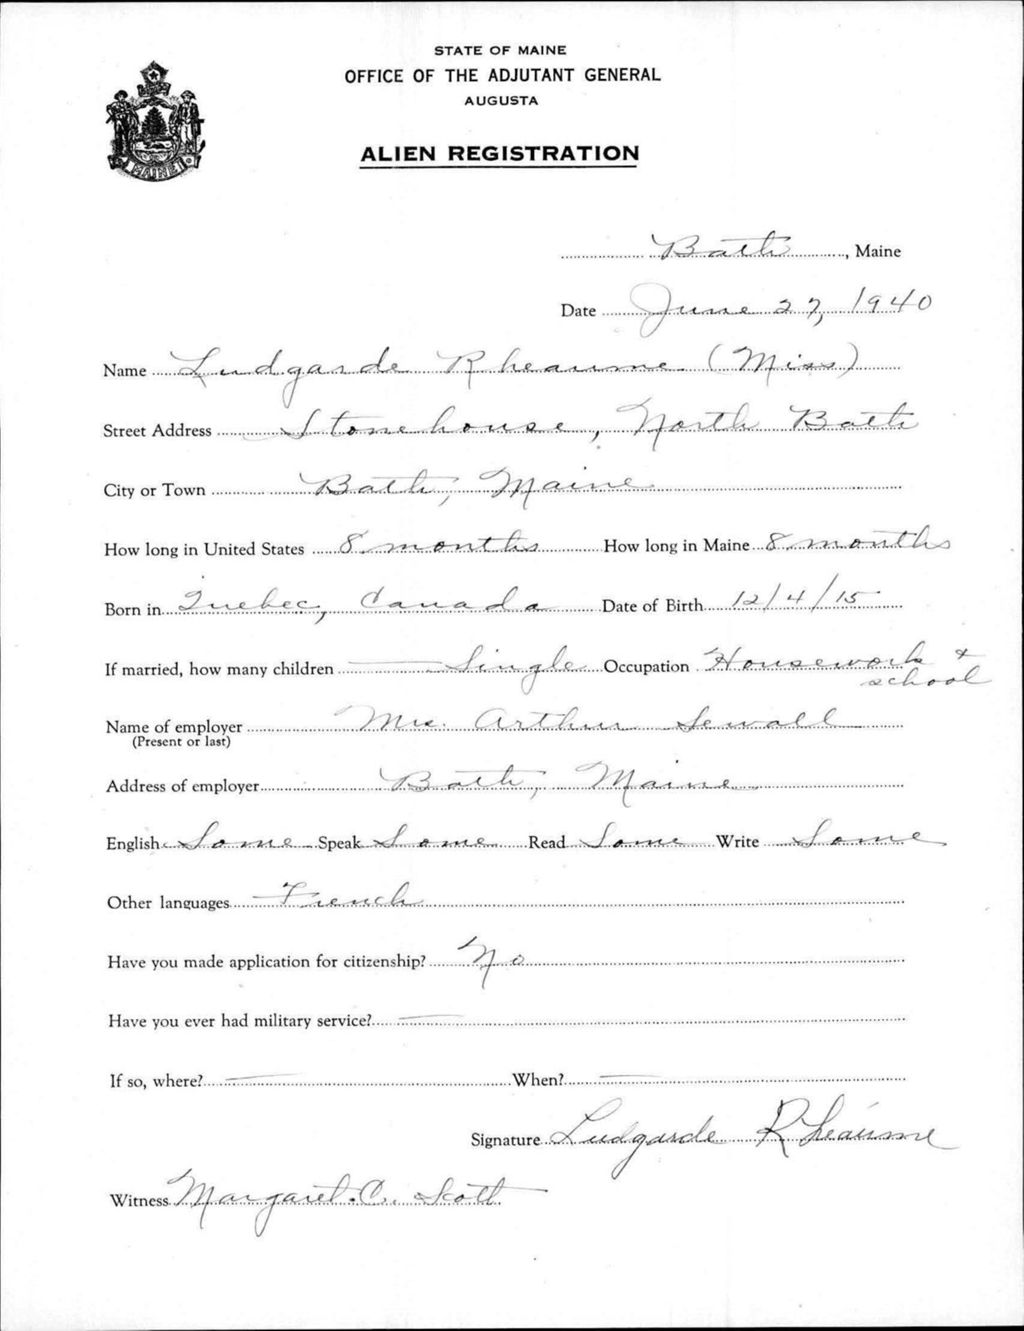 STATE OF MAINE
OFFICE OF THE ADJUTANT GENERAL
AUGUSTA
ALIEN REGISTRATION
MAINE
Bath, Maine
Date June 27, 1940
Name Ludgarde Rheaume (Miss)
Street Address Stonehouse, North Bath
City or Town Bath, Maine
How long in United States 8 months How long in Maine 8 months
Born in Quebec, Canada Date of Birth 12/4/15
If married, how many children — Single Occupation Housework & school
Name of employer Mrs. Arthur Sewall
(Present or last)
Address of employer Bath, Maine
English Some Speak Some Read Some Write Some
Other languages French
Have you made application for citizenship? No
Have you ever had military service? —
If so, where? — When? —
Signature Ludgarde Rhéaume
Witness Margaret C. Scott